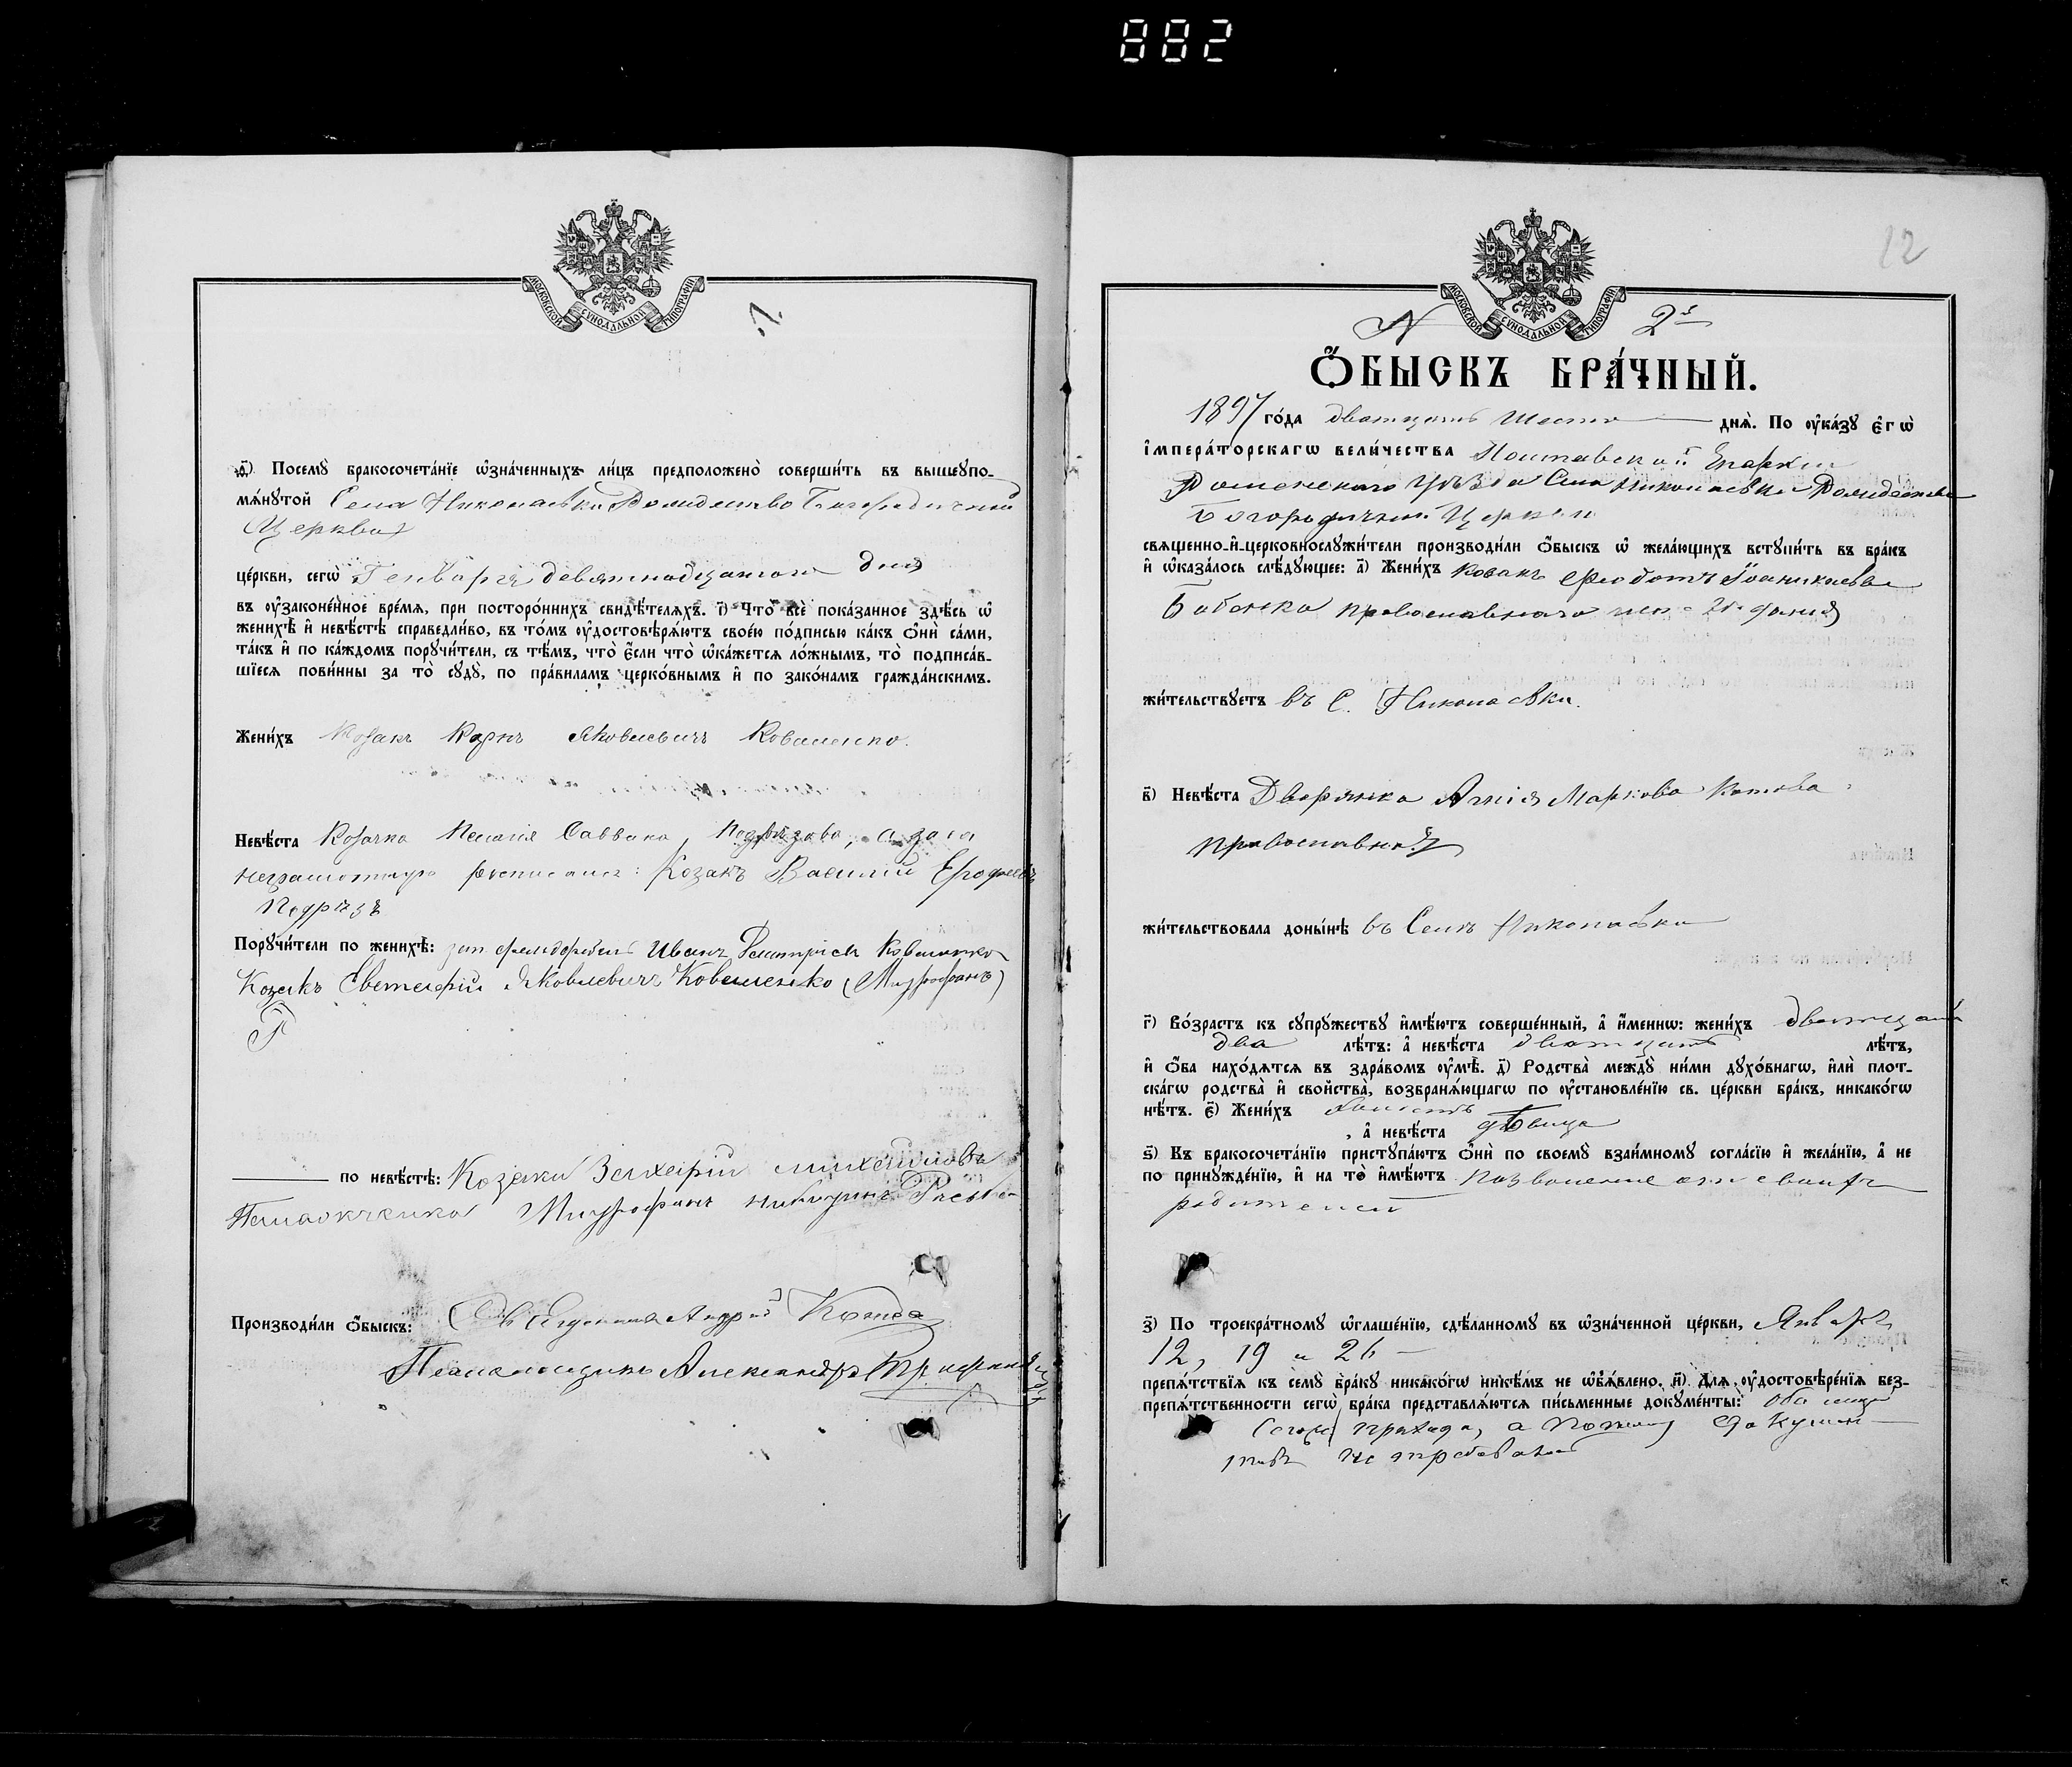 882
МОСКОВСКОЙ СѴНОДАЛЬНОЙ ТИПОГРАФІИ
Посемꙋ бракосочета́нїе ѡ҆зна́ченныхъ ли́цъ предположено̀ соверши́ть въ вышеꙋпо-
мѧ́нꙋтой Села Николаевки Рождество Богородичной
Церкви
це́ркви, сегѡ̀ Генваря девятнадцатого дня
въ ᲂу҆законе́нное вре́мѧ, при посторо́ннихъ свидѣ́телѧхъ. і҃) Что̀ всѐ пока́занное здѣ́сь ѡ҆
женихѣ̀ и҆ невѣ́стѣ справедли́во, въ то́мъ ᲂу҆достовѣрѧ́ютъ свое́ю по́дписью ка́къ ѻ҆нѝ са́ми,
та́къ и҆ по ка́ждомъ порꙋчи́тели, съ тѣ́мъ, что̀ є҆́сли что̀ ѡ҆ка́жетсѧ ло́жнымъ, то̀ подписа́в-
шїесѧ пови́нны за то̀ сꙋдꙋ̀, по пра́виламъ церко́внымъ и҆ по зако́намъ гражда́нскимъ.
Жени́хъ Козакъ Карпъ Яковлевичъ Коваленко.
Невѣ́ста Козачка Пелагія Саввина, а за нея
неграмотную росписался: Козакъ Василій
Подрѣзъ
Порꙋчи́тели по женихѣ̀: Иванъ Коваленко
Козакъ Яковлевичъ Коваленко (Митрофанъ)
по невѣ́стѣ: Козаки Захарій Михайловъ
Митрофанъ
Производи́ли ѻ҆́быскъ: Андрей
Псаломщикъ Александръ
12
N 2й
МОСКОВСКОЙ СѴНОДАЛЬНОЙ ТИПОГРАФІИ
Ѻ҆́БЫСКЪ БРА́ЧНЫЙ.
1897 го́да двадцать шесто днѧ̀. По ᲂу҆ка́зꙋ є҆гѡ̀
і҆мпера́торскагѡ вели́чества Полтавской Епархіи
Роменскаго Уѣзда Села Николаевки Рождество
Богородичной Церкви
свѧщенно-и҆-церковнослꙋжи́тели производи́ли ѻ҆́быскъ ѡ҆ жела́ющихъ встꙋпи́ть въ бра́къ
и҆ ѡ҆каза́лось слѣ́дꙋющее: а҃) Жени́хъ Козакъ Феодотъ Іоанникіевъ
Бабенко православнаго
жи́тельствꙋетъ въ С. Николаевки.
в҃) Невѣ́ста Дворянка Маркова Котова
православная
жи́тельствовала доны́нѣ въ Селѣ Николаевки
г҃) Во́зрастъ къ сꙋпрꙋ́жествꙋ и҆мѣ́ютъ соверше́нный, а҆ и҆́менно: жени́хъ двадцать
два лѣ́тъ: а҆ невѣ́ста двадцать лѣ́тъ,
и҆ ѻ҆́ба нахо́дѧтсѧ въ здра́вомъ ᲂу҆мѣ̀. д҃) Родства̀ междꙋ̀ ни́ми дꙋхо́внагѡ, и҆лѝ плот-
ска́гѡ родства̀ и҆ сво́йства̀, возбранѧ́ющагѡ по ᲂу҆становле́нїю св. це́ркви бра́къ, никако́гѡ
нѣ́тъ. є҃) Жени́хъ холостъ
, а҆ невѣ́ста дѣвица
ѕ҃) Къ бракосочета́нїю пристꙋпа́ютъ ѻ҆нѝ по своемꙋ̀ взаи́мномꙋ согла́сїю и҆ жела́нїю, а҆ не
по принꙋжде́нїю, и҆ на то̀ и҆мѣ́ютъ позволеніе отъ своихъ
родителей
з҃) По троекра́тномꙋ ѡ҆глаше́нїю, сдѣ́ланномꙋ въ ѡ҆зна́ченной це́ркви, Января
12, 19 и 26
препѧ́тствїѧ къ семꙋ̀ бра́кꙋ никако́гѡ никѣ́мъ не ѡ҆б̾ѧ́влено. и҃) Длѧ ᲂу҆достовѣре́нїѧ без-
препѧ́тственности сегѡ̀ бра́ка представлѧ́ютсѧ пи́сьменные докꙋме́нты: Оба лица
сего прихода, а потому докумен-
товъ не требовалось